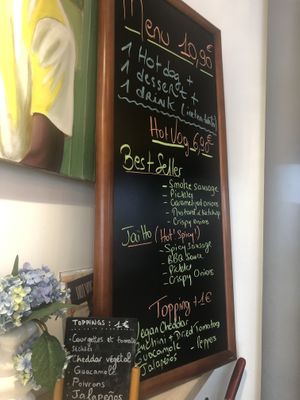 Menu 10,90€
1 Hotdog +
1 dessert +
1 drink
Hot Vog 6,90€
Best Seller
- Smoke sausage
- Pickles
- Caramelized onions
- Mustard & ketchup
- Crispy onions
Jaitto (Hot! Spicy!)
- Spicy Sausage
- BBQ Sauce
- Pickles
- Crispy Onions
Topping +1€
Vegan Cheddar
Zucchini + Dried Tomatoes
Guacamole - Peppers
Jalapeños
TOPPINGS : 1€
- Courgettes et tomates
séchées
- Cheddar végétal
- Guacamole
- Poivrons
- Jalapeños